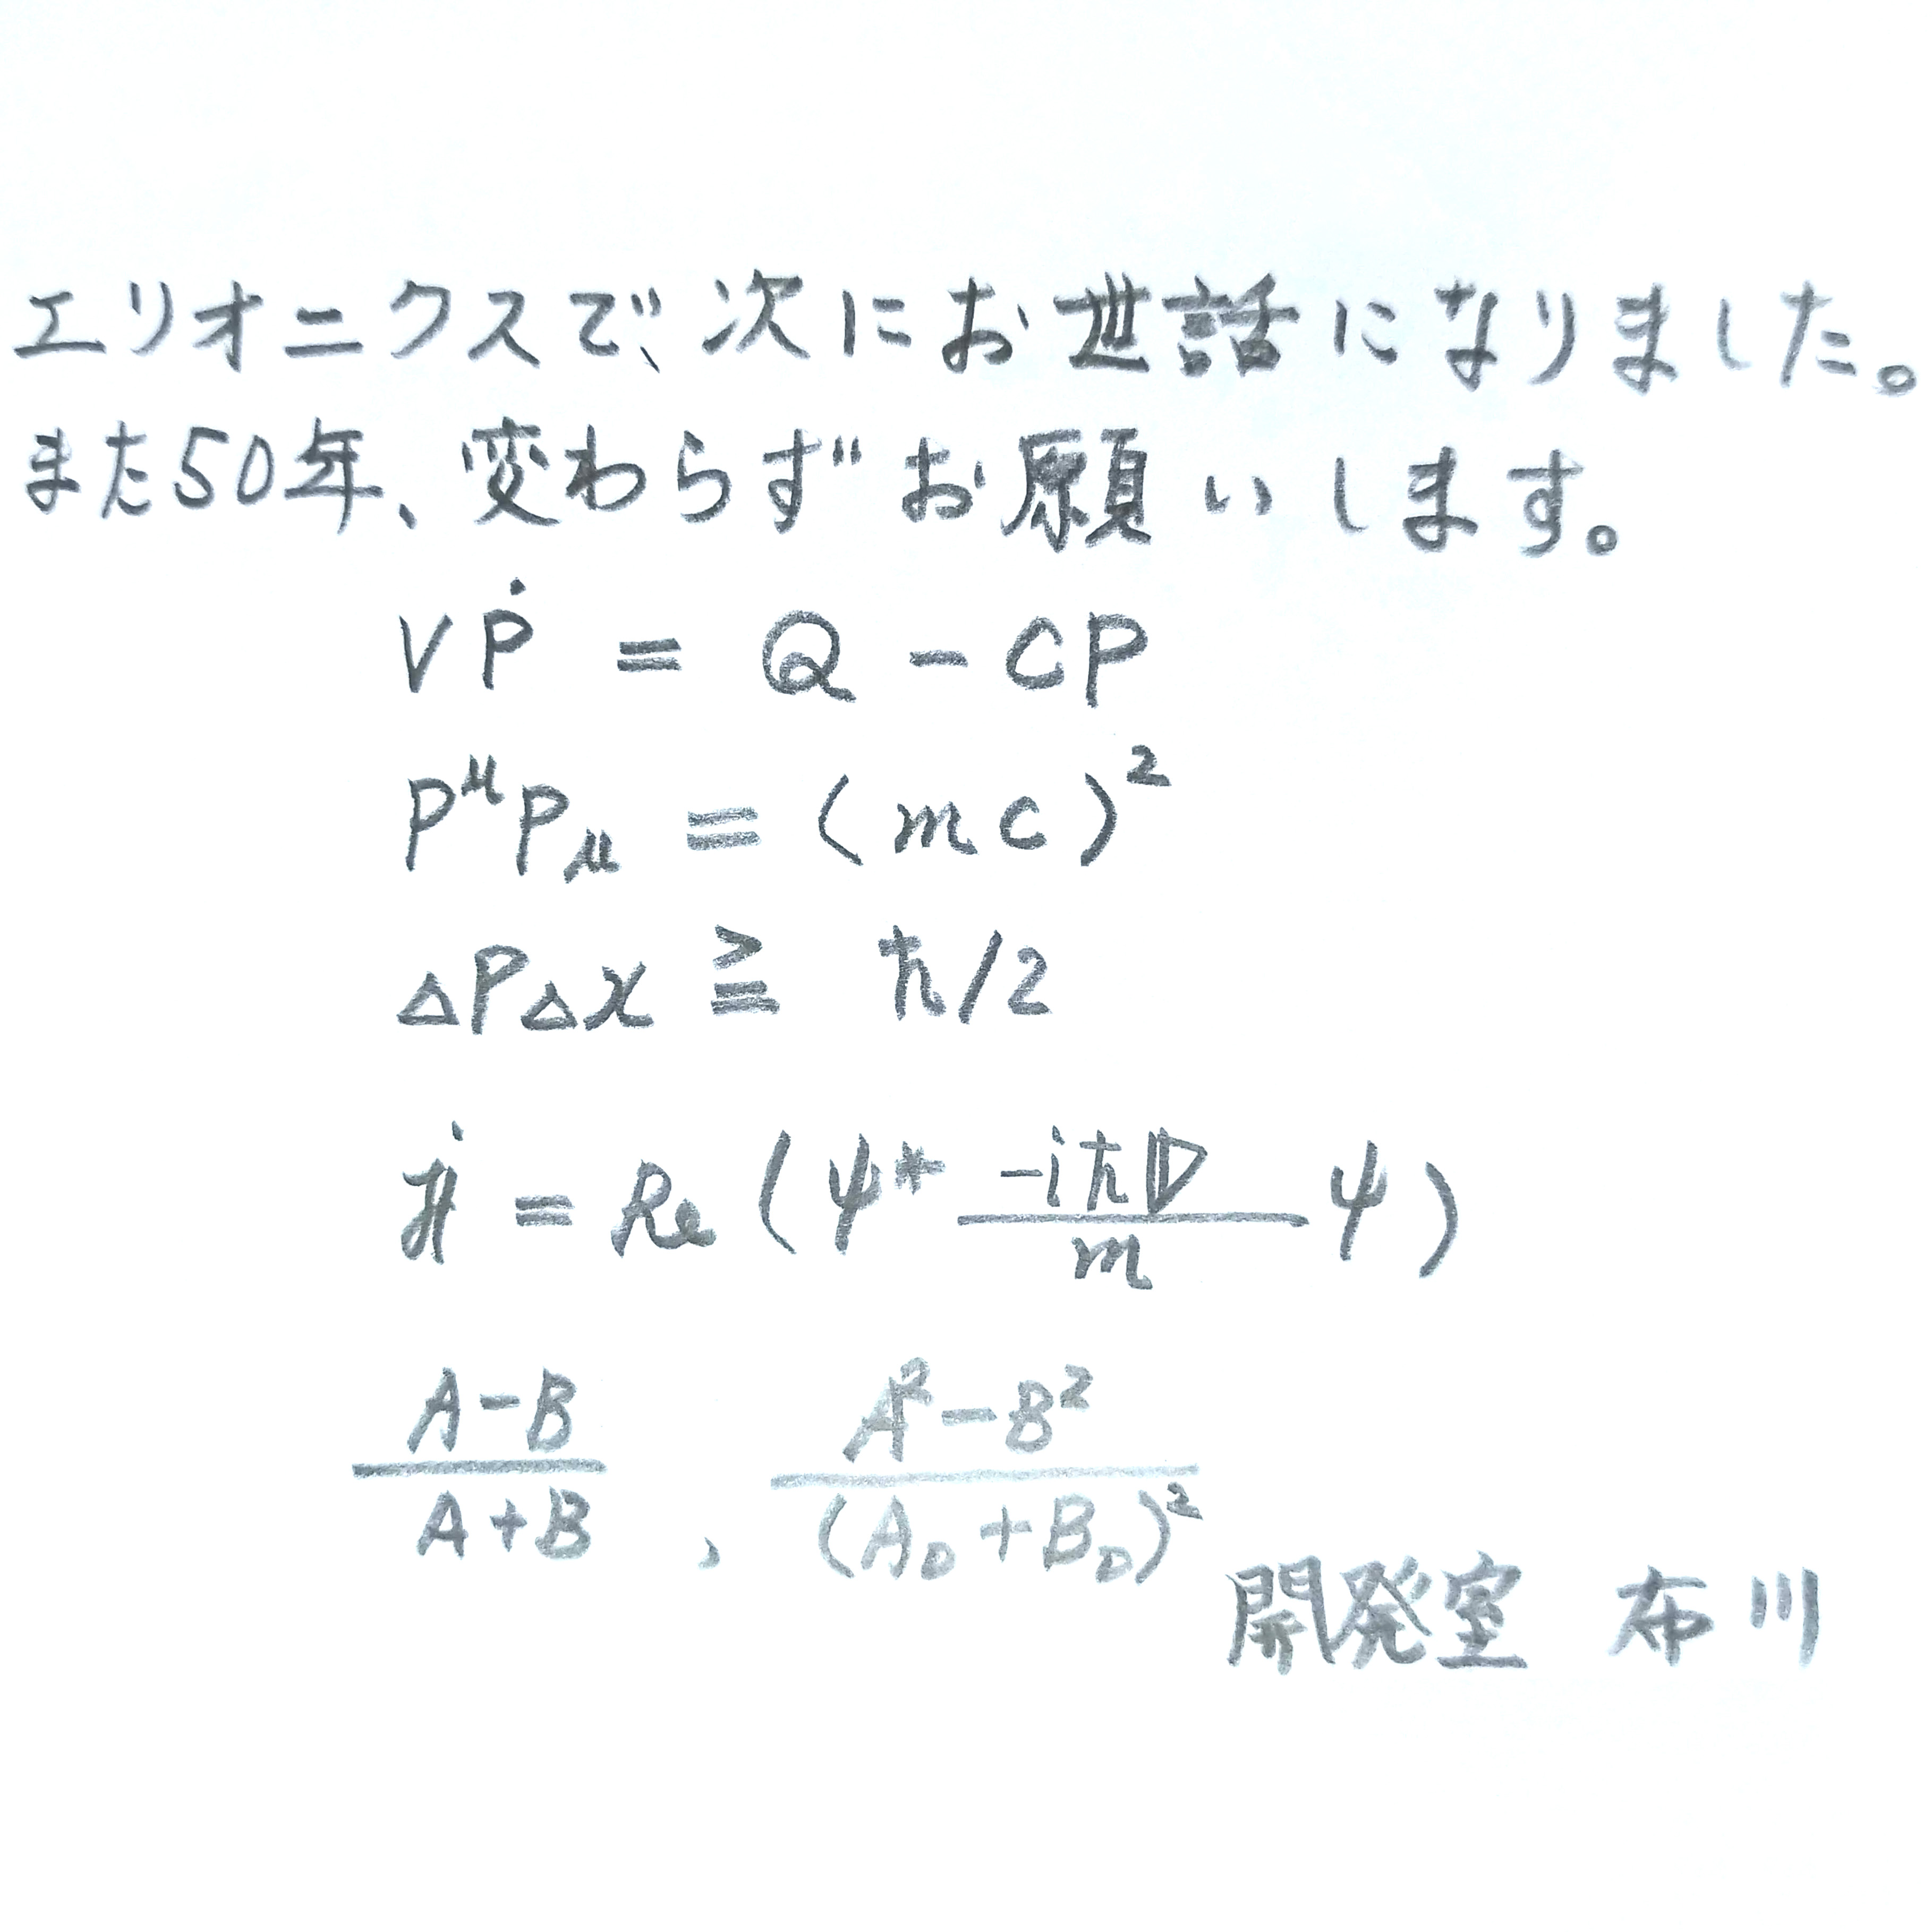 エリオニクスで、次にお世話になりました。
また50年、変わらずお願いします。
VṖ = Q - CP
P^μ P_μ = (mc)²
ΔPΔx ≧ ħ/2
j = Re (ψ* (-iħ𝔻)/m ψ)
(A-B)/(A+B) , (A²-B²)/(A_D+B_D)²
開発室 布川